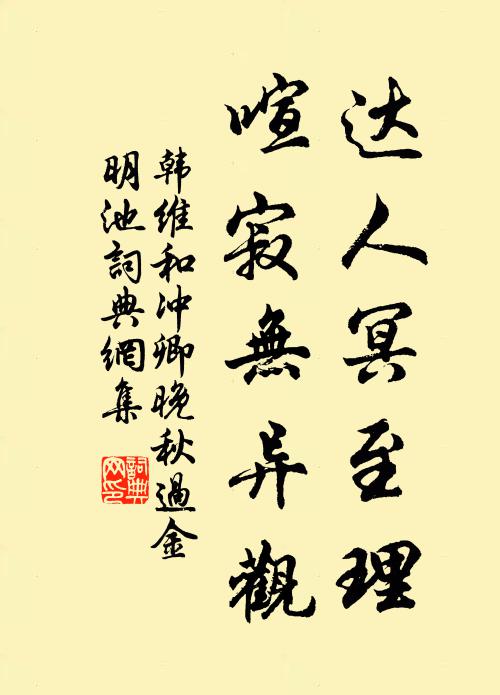 达人冥至理
喧寂無异觀
韩维和冲卿晚秋過金
明池詞典網集
詞典网印